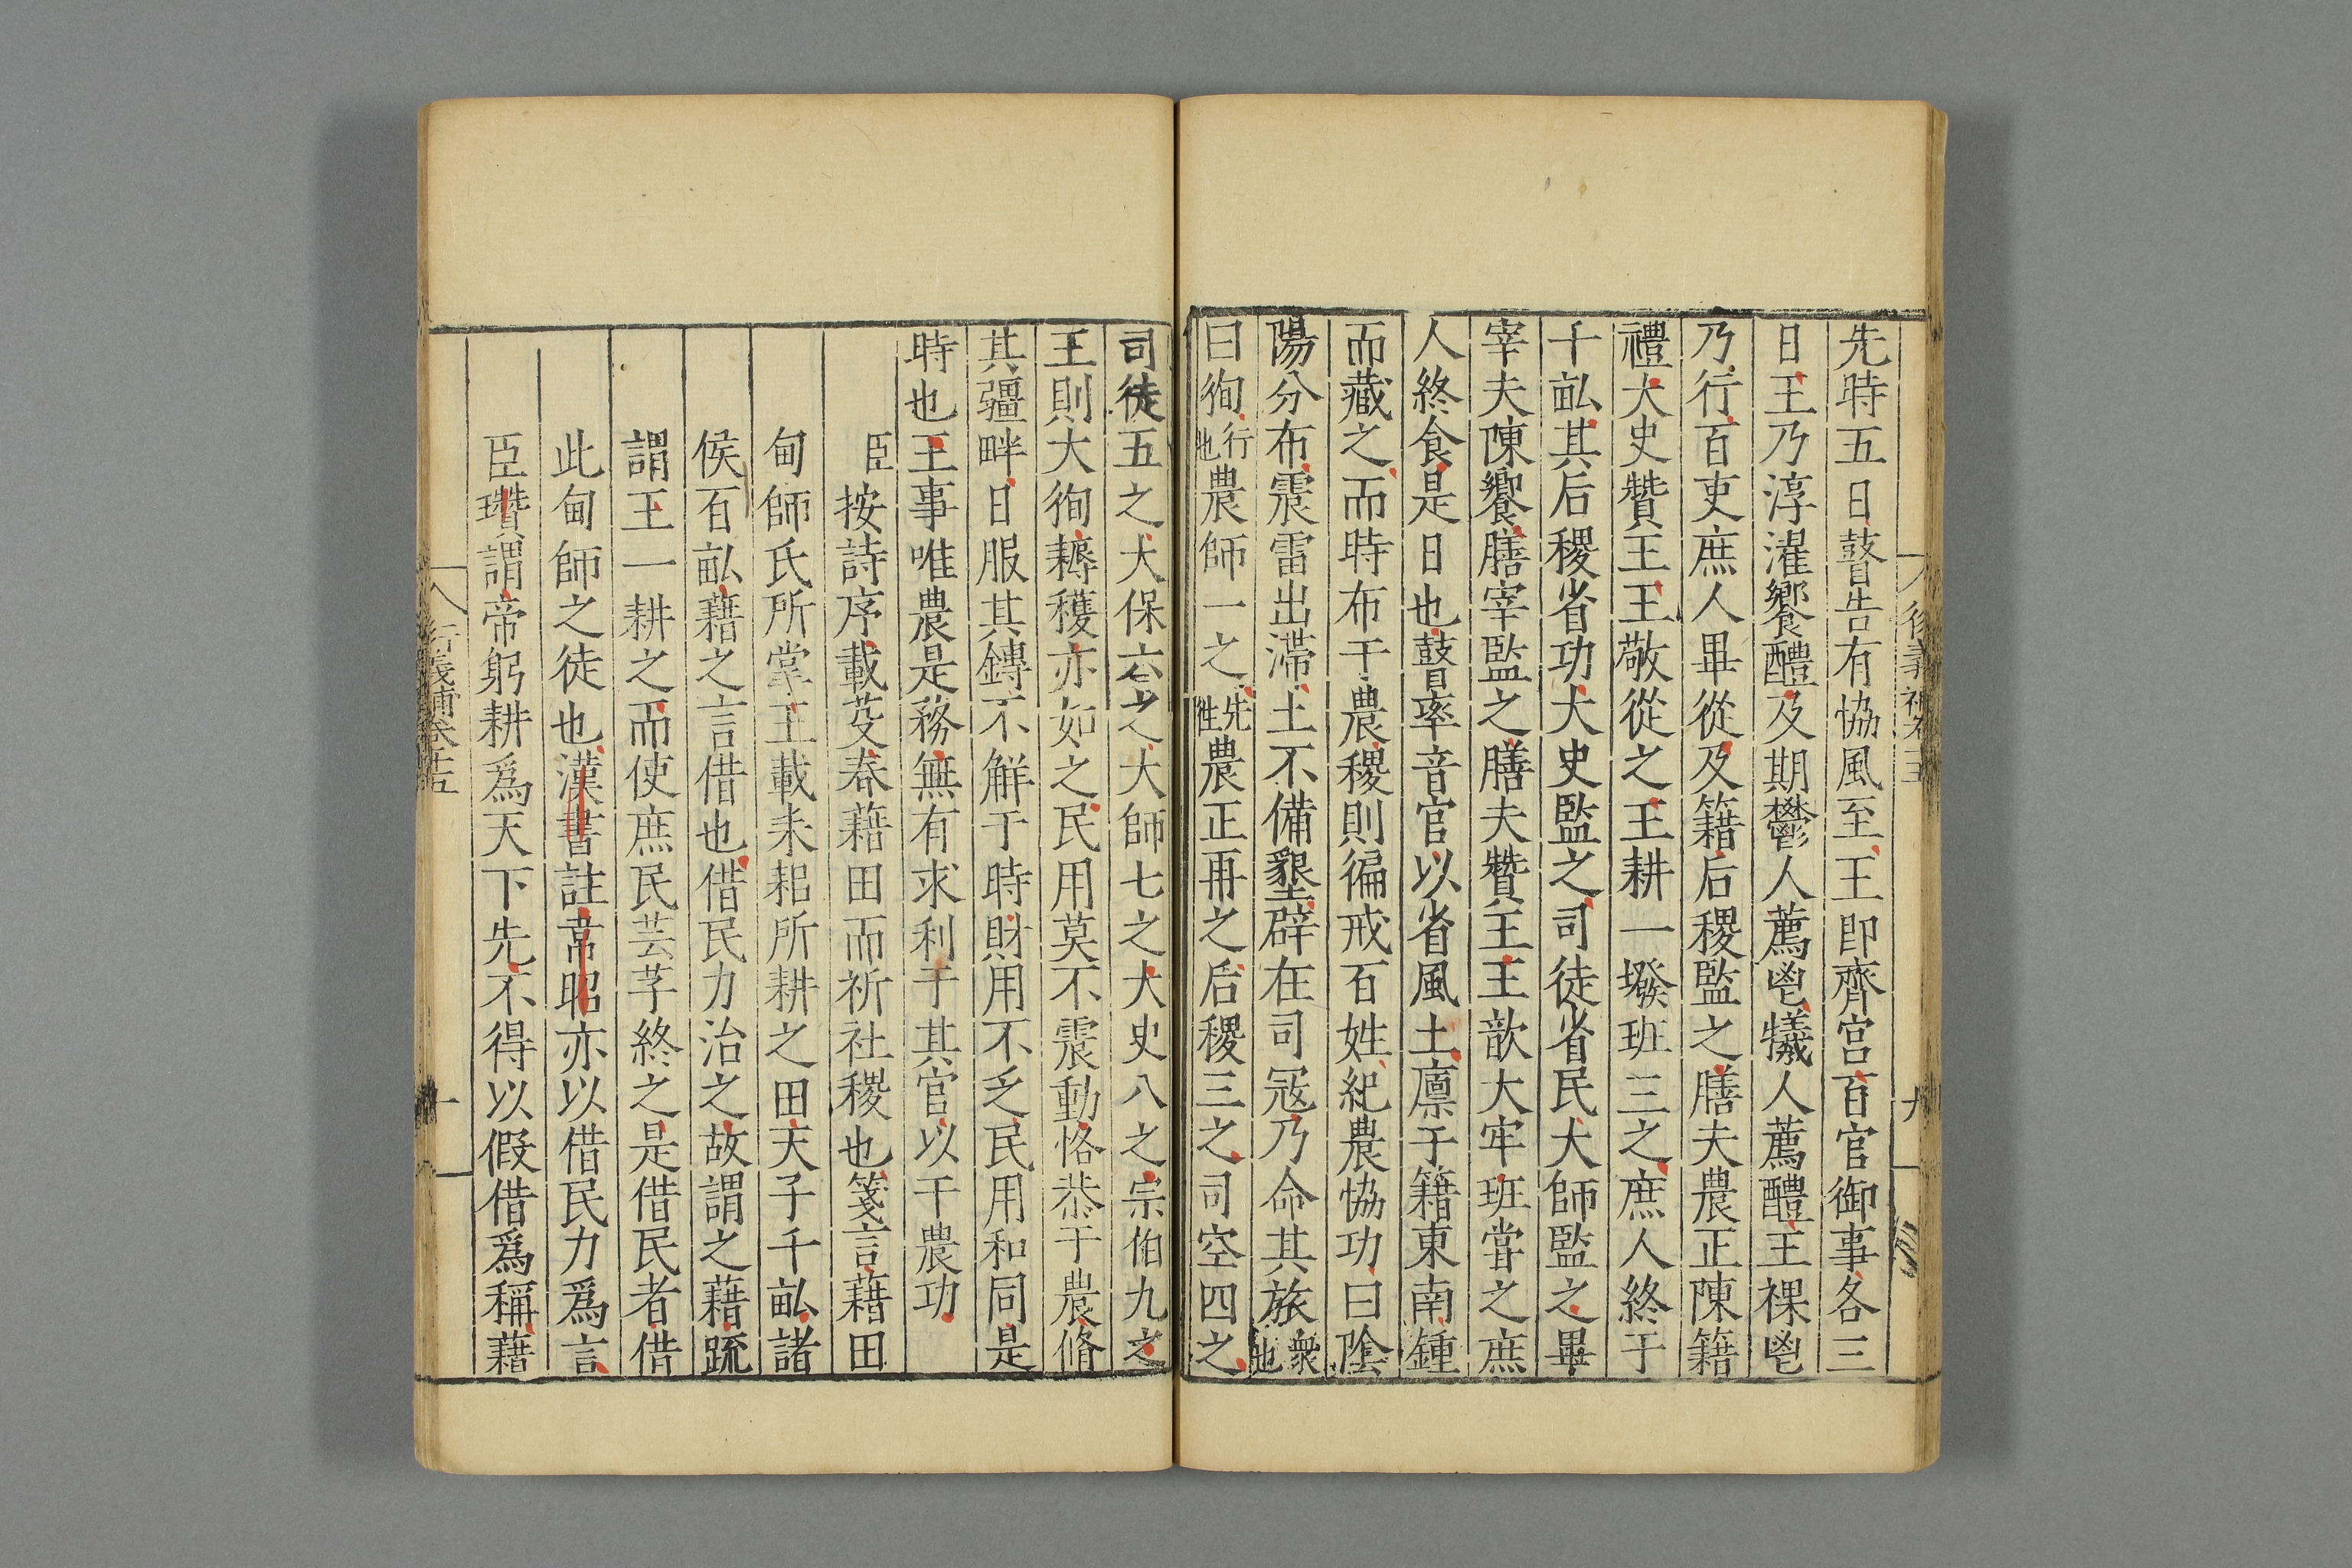 先時五日瞽告有協風至王即齊宮百官御事各三
日王乃淳濯饗醴及期鬱人薦鬯犧人薦醴王祼鬯
乃行百吏庶人畢從及籍后稷監之膳夫農正陳籍
禮大史贊王王敬從之王耕一墢班三之庶人終于
千畝其后稷省功大史監之司徒省民大師監之畢
宰夫陳饗膳宰監之膳夫贊王王歆大牢班嘗之庶
人終食是日也瞽率音官以省風土廩于籍東南鍾
而藏之而時布于農稷則徧戒百姓紀農協功曰陰
陽分布震雷出滯土不備墾辟在司寇乃命其旅衆也
曰徇行也農師一之先往農正再之后稷三之司空四之
司徒五之大保六之大師七之大史八之宗伯九之
王則大徇耨穫亦如之民用莫不震動恪恭于農脩
其疆畔日服其鎛不解于時財用不乏民用和同是
時也王事唯農是務無有求利于其官以干農功
臣按詩序載芟春藉田而祈社稷也箋言藉田
甸師氏所掌王載耒耜所耕之田天子千畝諸
侯百畝藉之言借也借民力治之故謂之藉疏
謂王一耕之而使庶民芸芓終之是借民者借
此甸師之徒也漢書註韋昭亦以借民力爲言
臣瓚謂帝躬耕爲天下先不得以假借爲稱藉
行義補卷三十五
十